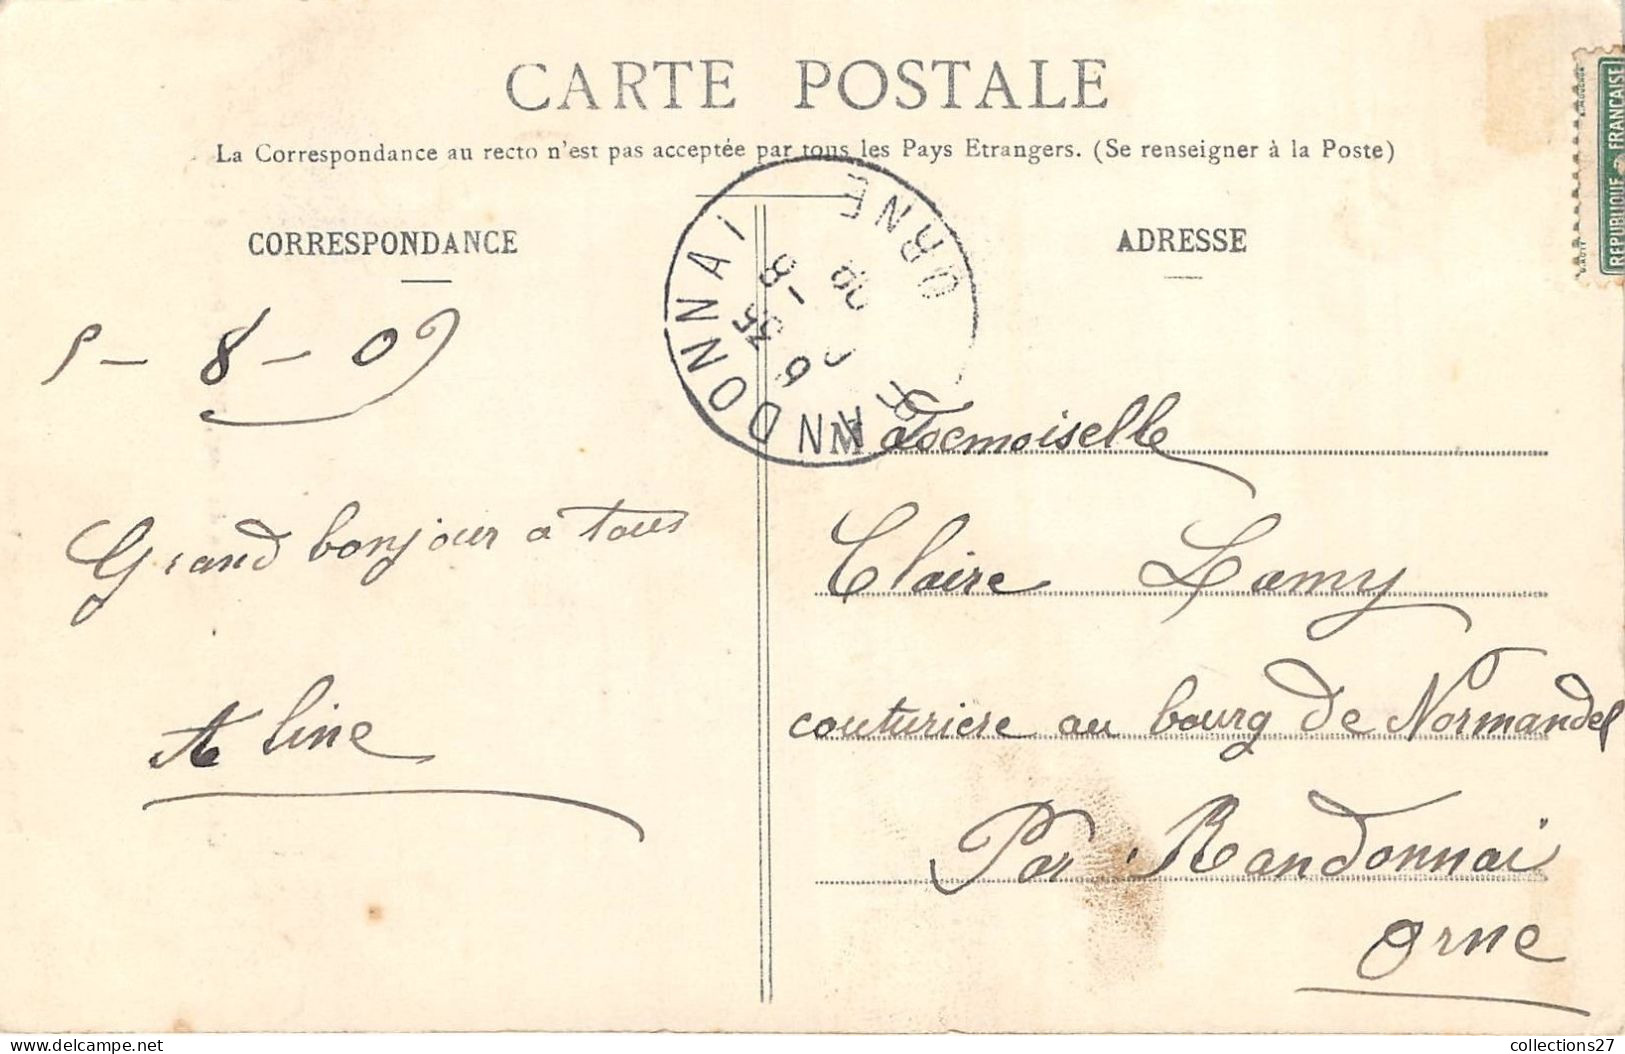 CARTE POSTALE
La Correspondance au recto n'est pas acceptée par tous les Pays Etrangers. (Se renseigner à la Poste)
CORRESPONDANCE
5 - 8 - 09
Grand bonjour a tous
Aline
RANDONNAI
ORNE
6 35
-8
09
ADRESSE
REPUBLIQUE FRANCAISE
Mademoiselle
Claire Lamy
couturiere au bourg de Normandel
Par Randonnai
Orne
collections27